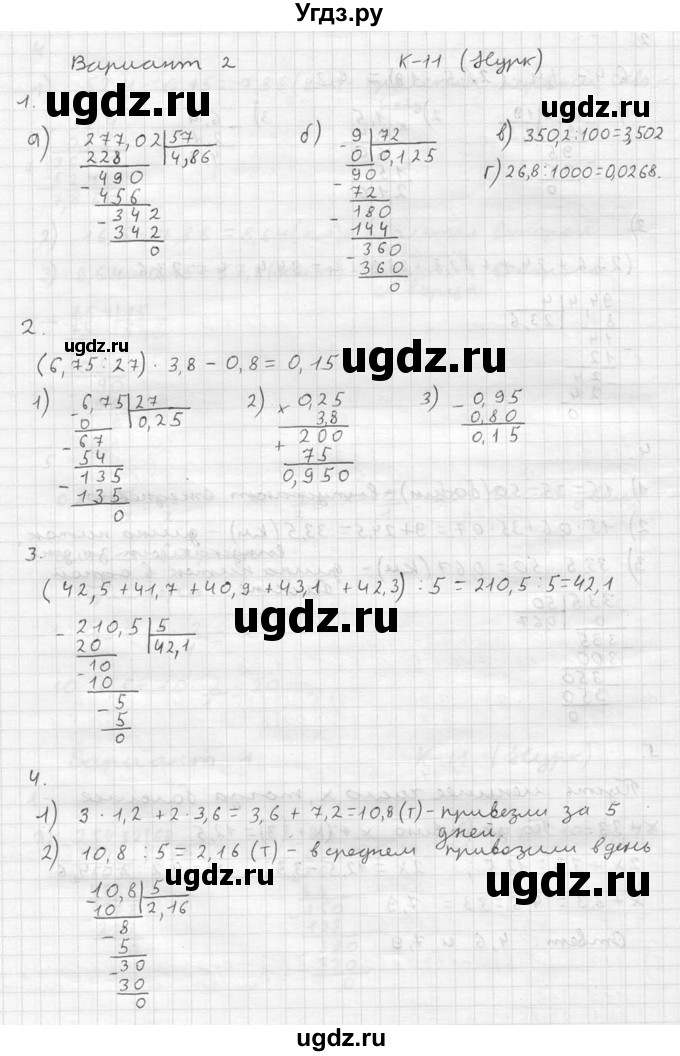 Угдз.ру
Вариант 2 К-11 (Нурк)
1.
а) 277,02 | 57
228 4,86
- 490
456
- 342
342
0
б) - 9 | 72
0 0,125
90
- 72
- 180
144
- 360
360
0
в) 350,2 : 100 = 3,502
г) 26,8 : 1000 = 0,0268.
2.
(6,75 : 27) · 3,8 - 0,8 = 0,15
1) - 6,75 | 27
0 0,25
- 67
54
- 135
135
0
2) × 0,25
3,8
+ 200
75
0,950
3) - 0,95
0,80
0,15
3.
(42,5 + 41,7 + 40,9 + 43,1 + 42,3) : 5 = 210,5 : 5 = 42,1
- 210,5 | 5
20 42,1
- 10
10
- 5
5
0
4.
1) 3 · 1,2 + 2 · 3,6 = 3,6 + 7,2 = 10,8 (т) - привезли за 5
дней
2) 10,8 : 5 = 2,16 (т) - в среднем привозили в день
- 10,8 | 5
10 2,16
- 8
5
- 30
30
0
ugdz.ru
ugdz.ru
ugdz.ru
ugdz.ru
ugdz.ru
ugdz.ru
ugdz.ru
ugdz.ru
ugdz.ru